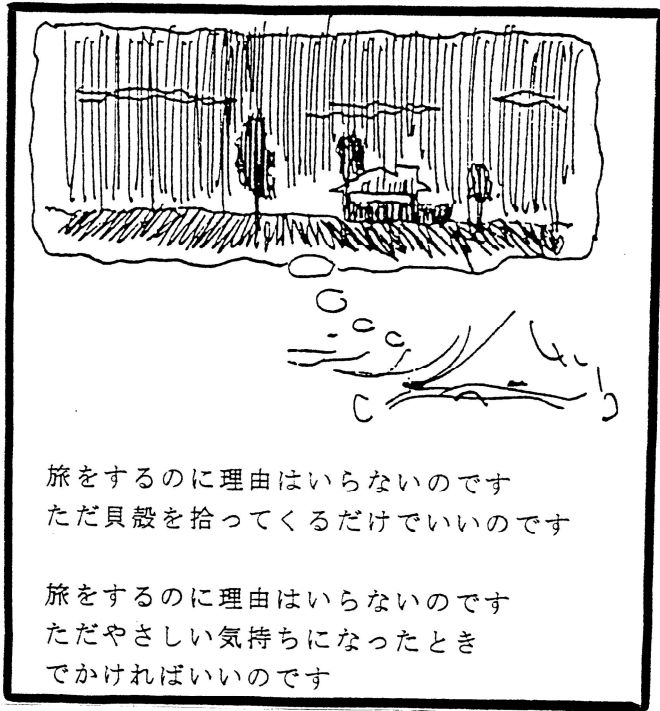 旅をするのに理由はいらないのです
ただ貝殻を拾ってくるだけでいいのです
旅をするのに理由はいらないのです
ただやさしい気持ちになったとき
でかければいいのです